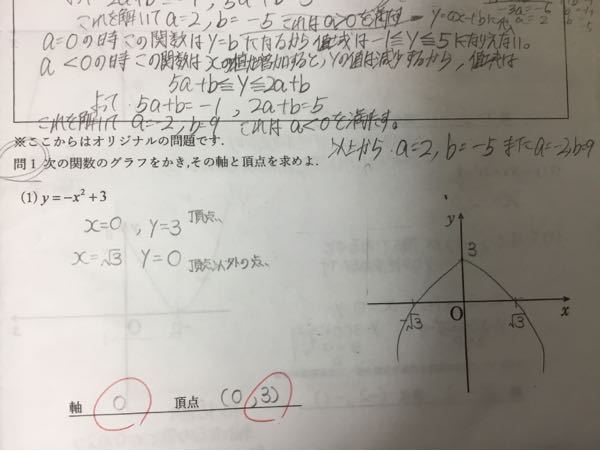 これを解いて a=2, b=-5 これは a>0を満す
a=0の時この関数はy=bになるから値域は-1≦y≦5になりえない.
a<0の時この関数はxの値が増加すると、yの値は減少するから、値域は
5a+b≦y≦2a+b
よって、5a+b=-1, 2a+b=5
これを解いて a=-2, b=9 これは a<0を満す。
※ここからはオリジナルの問題です.
以上から、a=2, b=-5 また a=-2, b=9
問1 次の関数のグラフをかき,その軸と頂点を求めよ.
(1) y=-x²+3
x=0 , y=3 頂点、
x=√3 y=0 頂点以外の点、
y
3
-√3
O
√3
x
軸 0 頂点 (0,3)